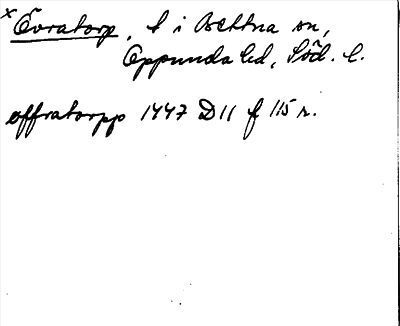 x Övratorp, t i Bettna sn,
Oppunda hd, Söd. l.
offratorpp 1447 D11 f 115 r.